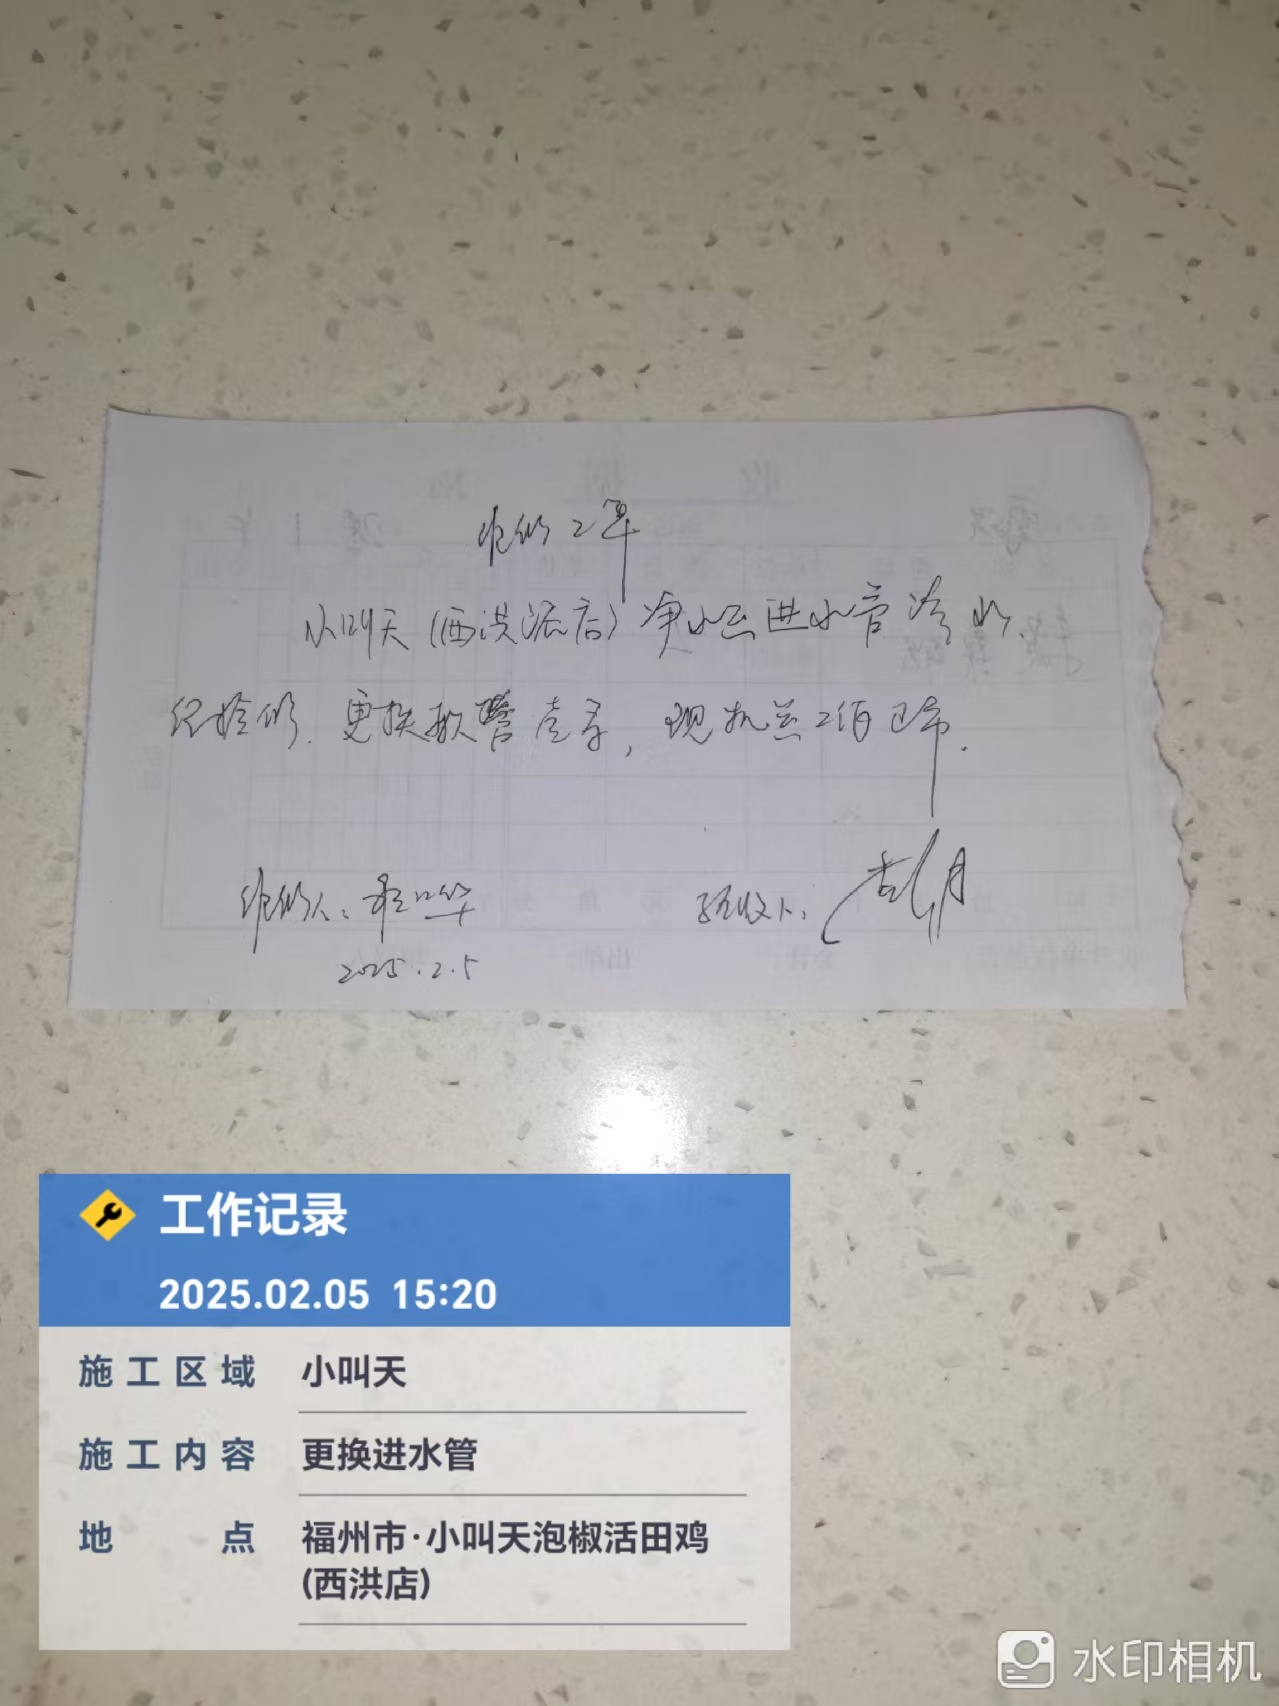 维修工单
小叫天(西洪路店)净水器进水管漏水.
经检修.更换软管壹条,现机器工作正常.
维修人:
验收人:
2025.2.5
工作记录
2025.02.05 15:20
施工区域 小叫天
施工内容 更换进水管
地点 福州市·小叫天泡椒活田鸡
(西洪店)
水印相机